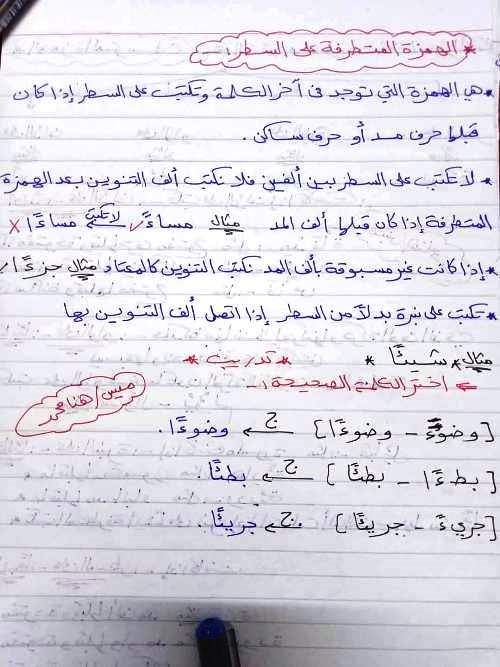 * الهمزة المتطرفة على السطر :-
* هي الهمزة التي توجد فى آخر الكلمة وتكتب على السطر إذا كان
قبلها حرف مد أو حرف ساكن .
* لا تكتب على السطر بين ألفين فلا نكتب ألف التنوين بعد الهمزة
المتطرفة إذا كان قبلها ألف المد مثال مساءً / لا تكتب مساءًا X
* إذا كانت غير مسبوقة بألف المد نكتب التنوين كالمعتاد مثال جزءًا /
* تكتب على نبرة بدلاً من السطر إذا اتصل ألف التنوين بها
مثال * شيئًا * * تدريب *
← اختر الكلمة الصحيحة :-
ميس / هنا محمد
[وضوءً - وضوءًا] ج ← وضوءًا.
[بطءًا - بطئًا] ج ← بطئًا.
[جريءً - جريئًا] ج ← جريئًا.